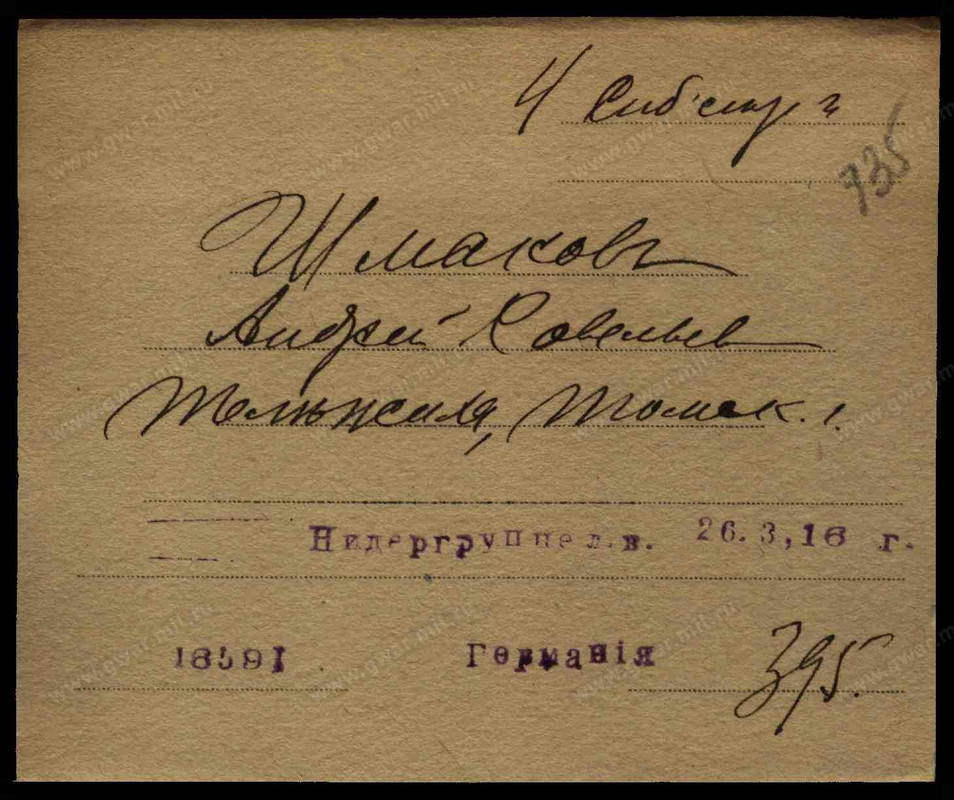 4 Сиб. стр.
735
Шмаковъ
Андрей Савельев
Томск. г.
Нидергруппе л.в. 26.3,16 г.
Германія 395.
www.gwar.mil.ru